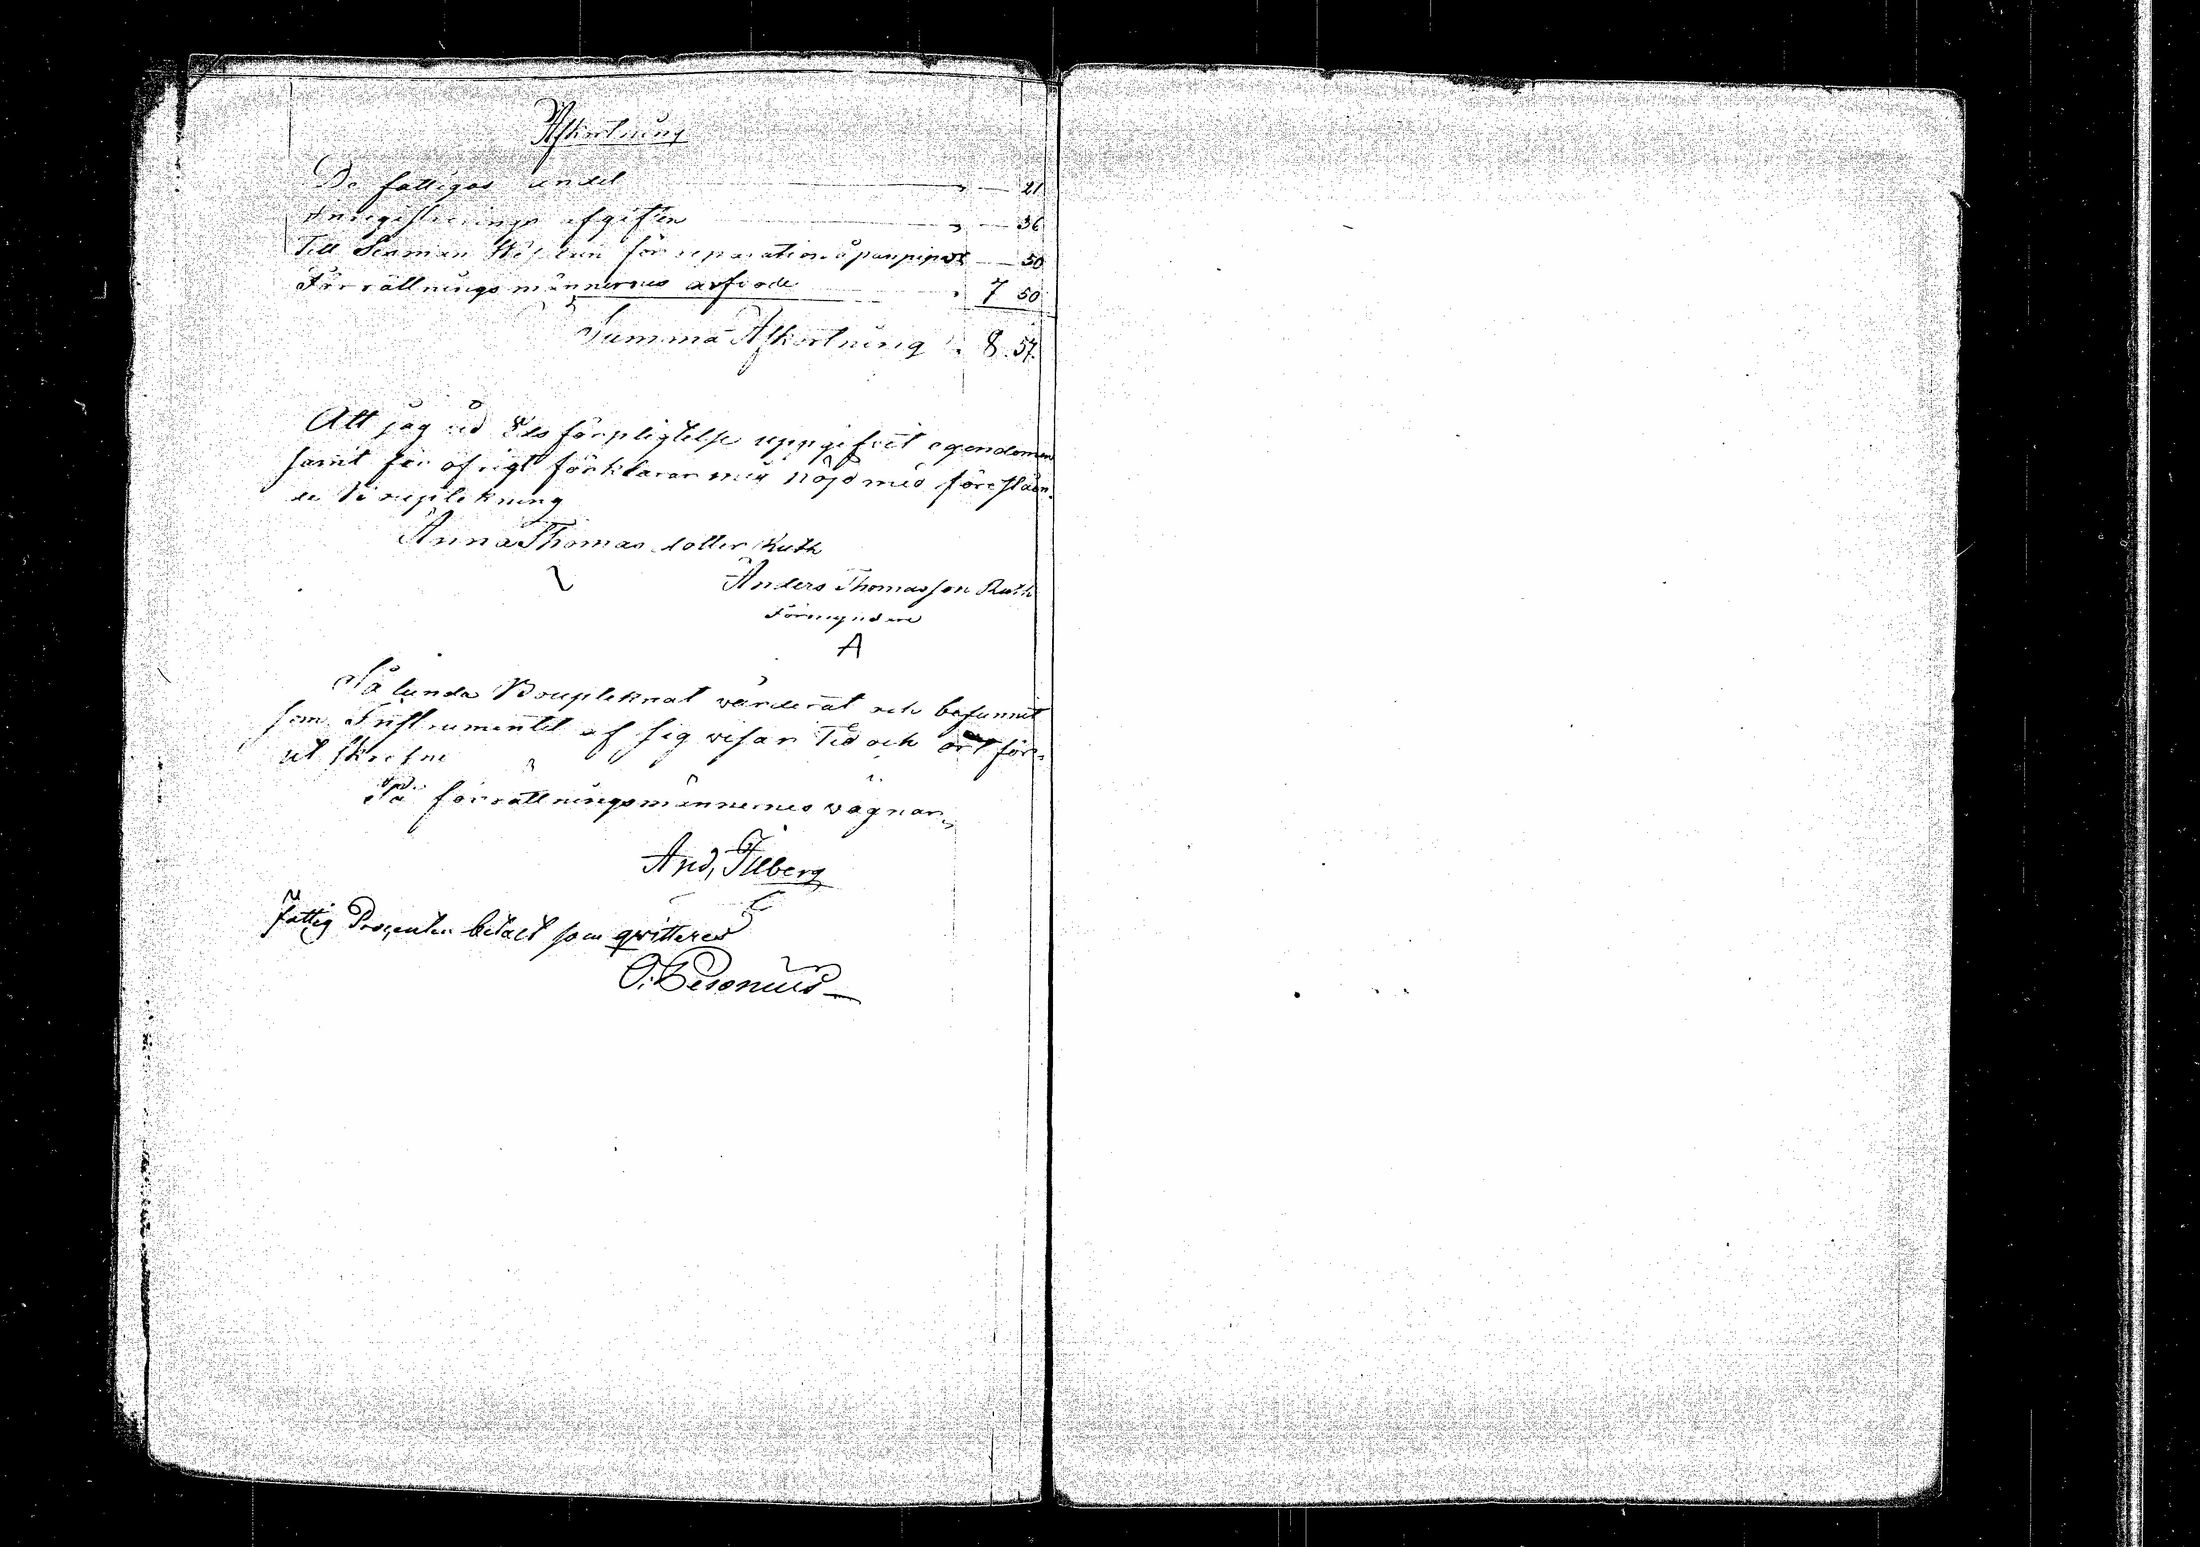 Afkortning
De fattigas andel " — 21
Inregistrerings afgiften " — 36
Till för reparation å — 50
Förrättningsmännernes arfvode " 7 50
Summa Afkortning " 8 57.
Att jag vid Eds förpligtelse uppgifvit egendomen
samt för öfrigt förklarar mig nöjd med föreståen-
de Boupptekning
Anna Thomas dotter Ruth
Anders Thomasson Ruth
Förmyndare
A
Sålunda Boupteknat värderat och befunnit
som Instrumentet af sig visar Tid och ort för-
ut skrefne
På förrättningsmännernes vägnar
And, Tilberg
fattig Procenten betalt som qvitteras
O. Cesonius